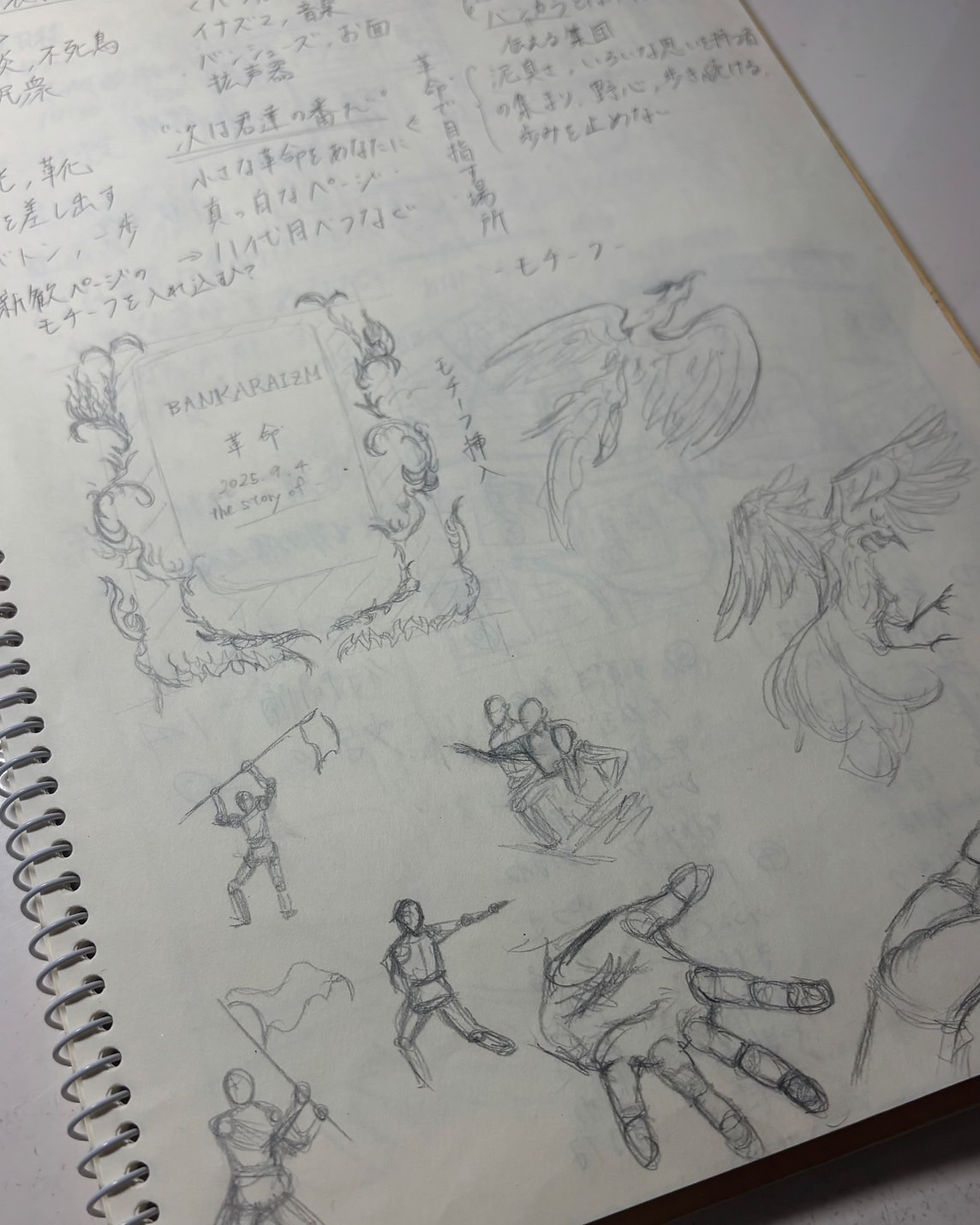 炎,不死鳥
民衆
イナズマ,音楽
バンシューズ,お面
拡声器
"次は君達の番だ"
小さな革命をあなたに
真っ白なページ
→ 八代目へつなぐ
革命で目指す場所
伝える集団
泥臭さ,いろいろな思いを持つ者
の集まり,野心,歩き続ける,
歩みを止めない
,靴
を差し出す
バトン,一歩
新歓ページの
モチーフを入れ込む?
-モチーフ-
BANKARAIZM
革命
2025.9.4
the story of
モチーフ挿入